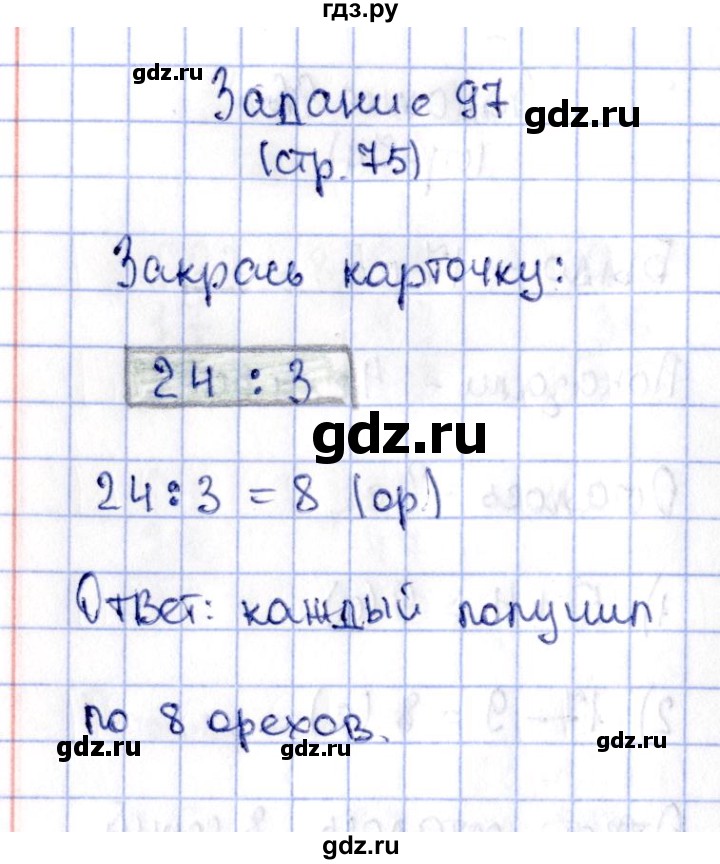 гдз.ру
gdz.ru
Задание 97
gdz.ru
(стр. 75)
Закрась карточку:
24 : 3
gdz.ru
24 : 3 = 8 (ор.)
Ответ: каждый получил
по 8 орехов.
gdz.ru
gdz.ru
gdz.ru
gdz.ru